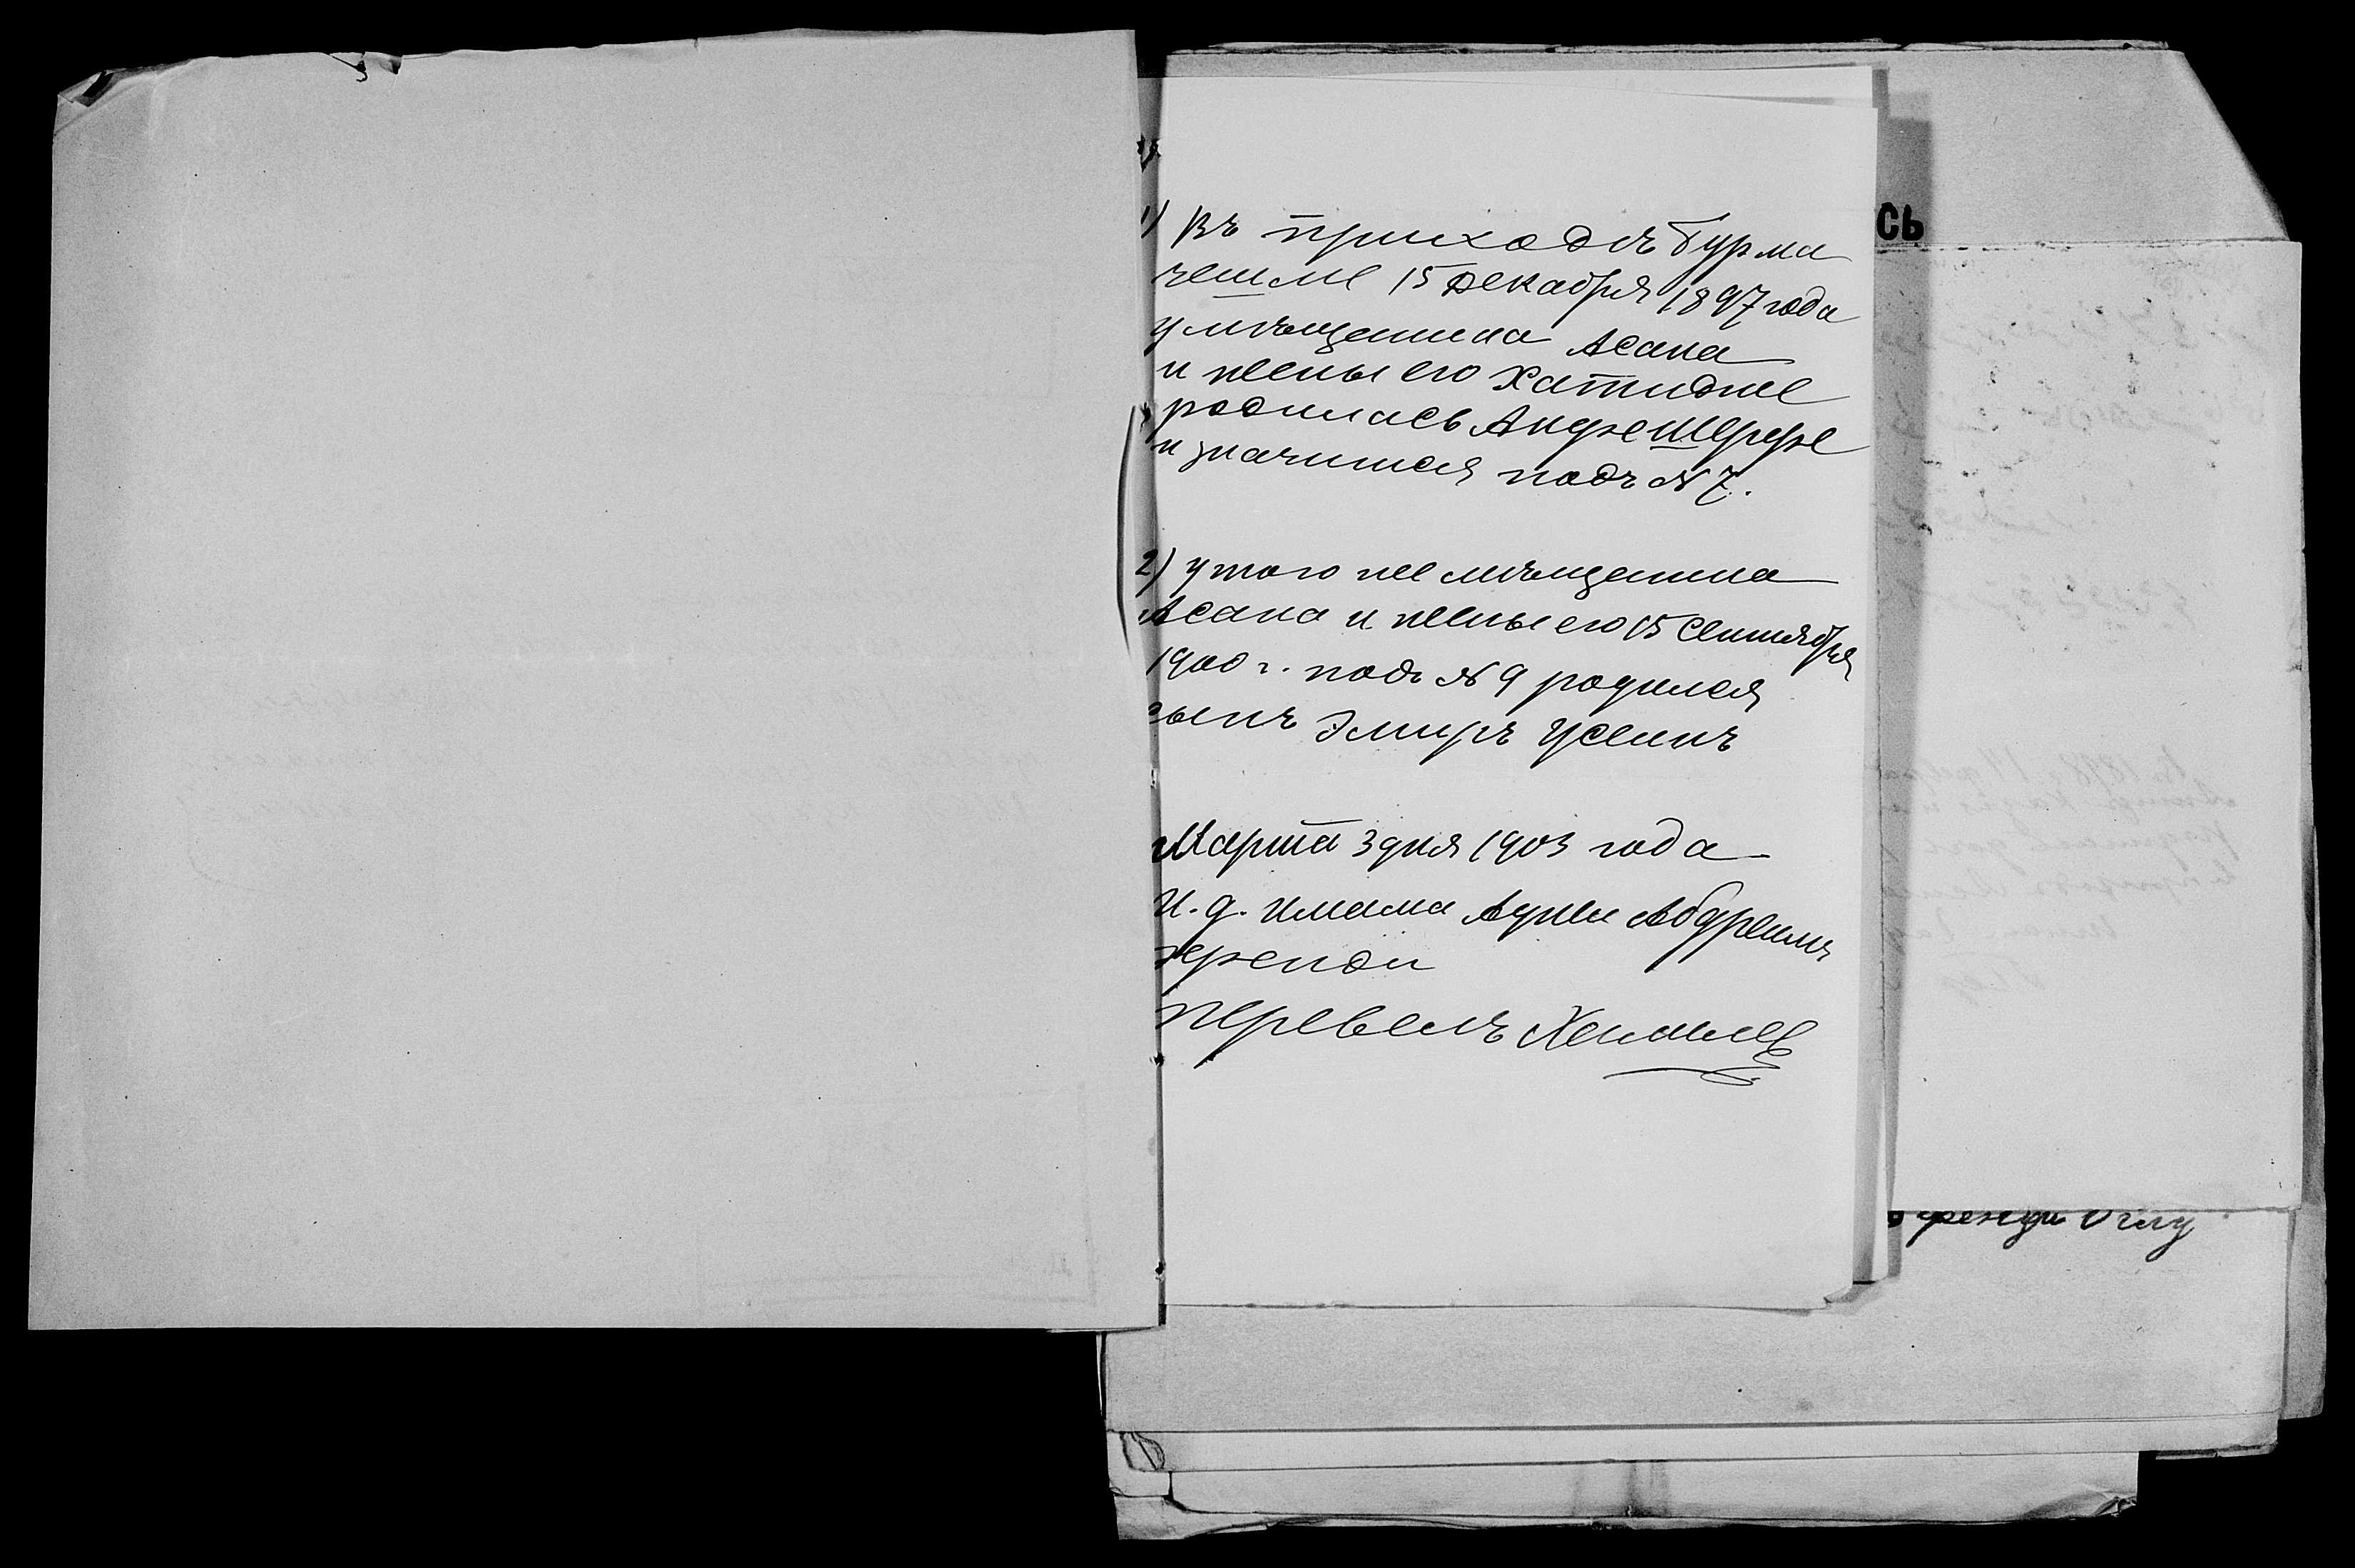 1) Въ приходѣ Бурма
чешме 15 Декабря 1897 года
у мѣщанина Асана
и жены его Хатидже
родилась Анифе Шерфе
и значится подъ № 7.
2) у того же мѣщанина
Асана и жены его 15 Сентября
1900 г. подъ № 9 родился
сынъ Эмиръ Усеинъ
Марта 3 дня 1903 года
И. д. имама Аджи Абдреимъ
эфенди
перевелъ
СЬ
эфенди Оглу